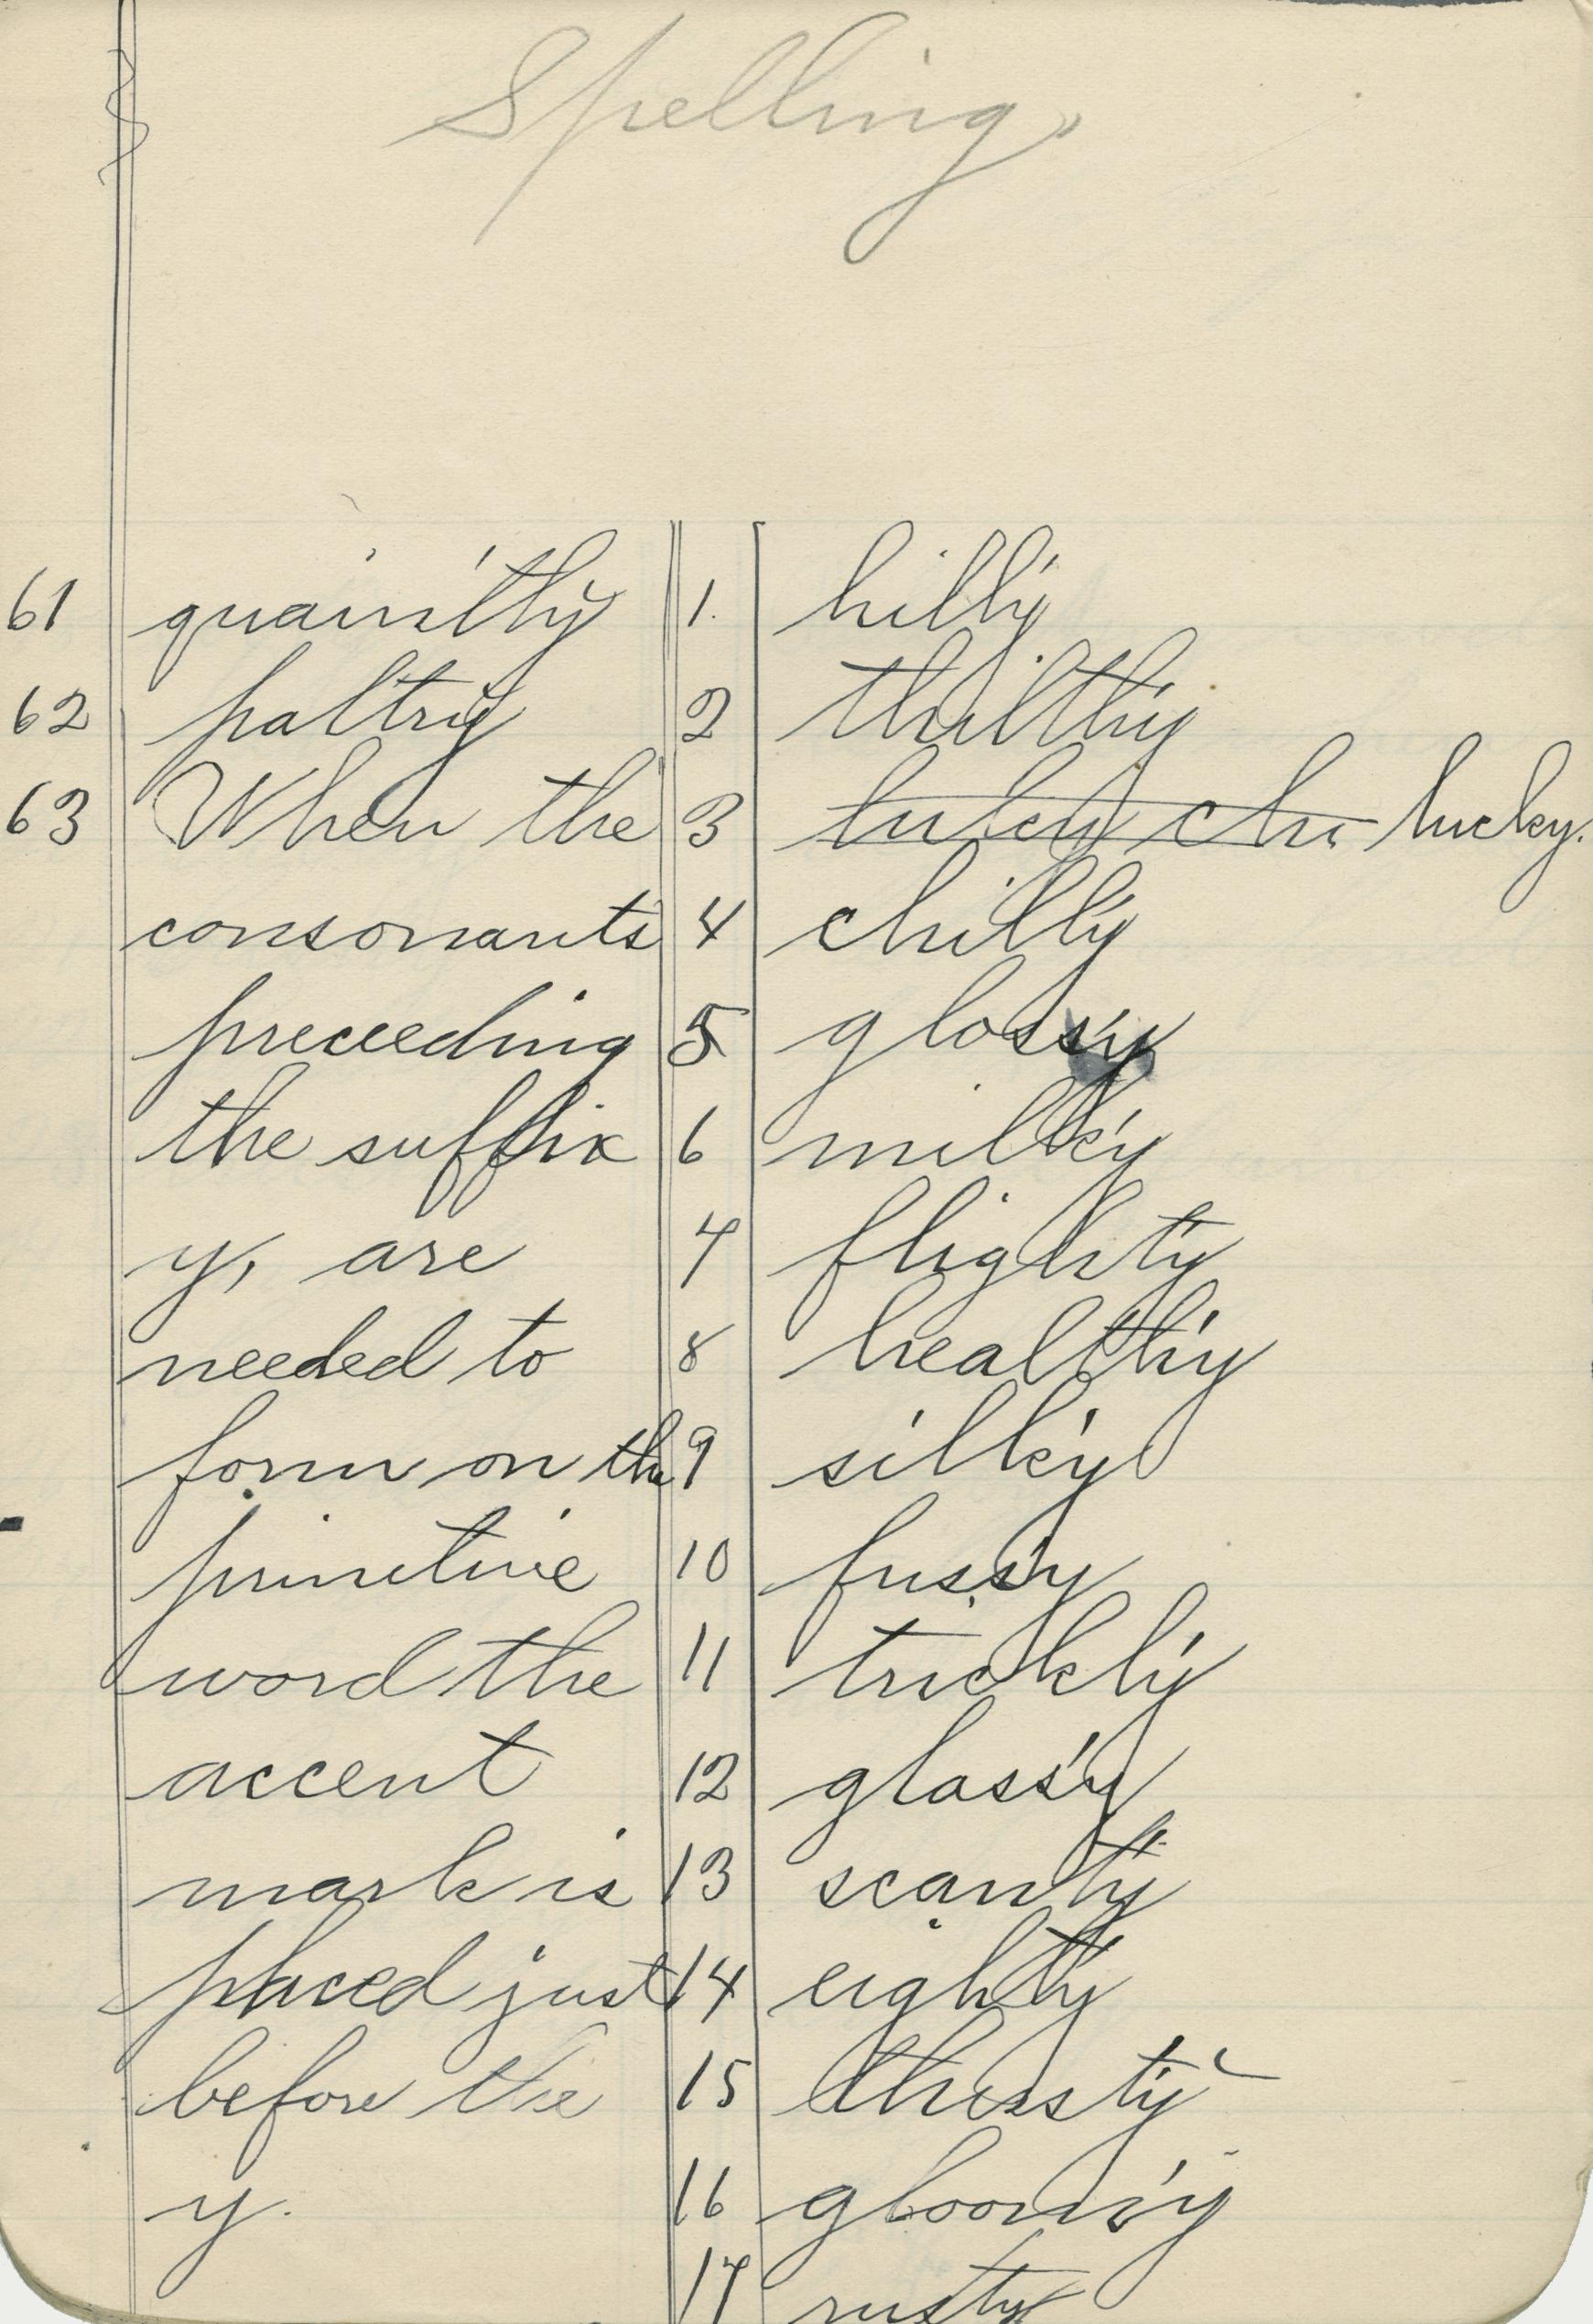 Spelling.
61 quaintly
62 paltry
63 When the
consonants
preceeding
the suffix
y, are
needed to
form on the
primitive
word the
accent
mark is
placed just
before the
y.
1. hill'y
2 thilth'y
3 lucky.
4 chill'y
5 gloss'y
6 milk'y
7 flight'y
8 health'y
9 silk'y
10 fuss'y
11 trickl'y
12 glass'y
13 scant'y
14 eighty
15 thirst'y
16 gloom'y
17 rusty